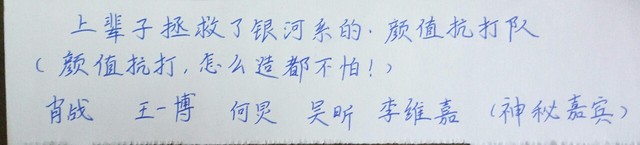 上辈子拯救了银河系的·颜值抗打队
(颜值抗打,怎么造都不怕!)
肖战 王一博 何炅 吴昕 李维嘉 (神秘嘉宾)